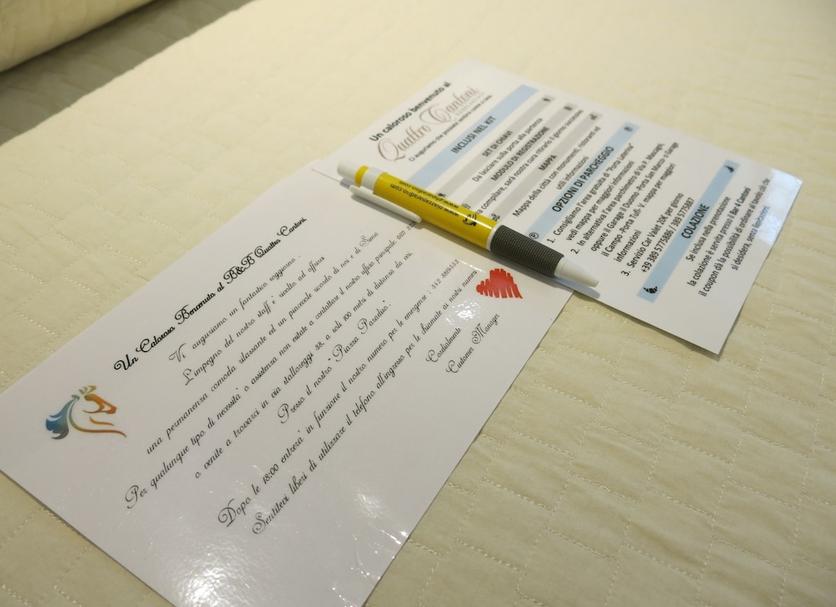 Un Caloroso Benvenuto al B&B Quattro Cantoni.
Vi auguriamo un fantastico soggiorno.
L'impegno del nostro staff è volto ad offrirvi
una permanenza comoda, rilassante ed un piacevole ricordo di noi e di Siena.
Per qualunque tipo di necessità o assistenza non esitate a contattare il nostro ufficio principale
o venite a trovarci in via stalloreggi 38, a soli 100 metri di distanza da noi.
Presso il nostro "Piazza Paradiso"
Dopo le 18:00 entrerà in funzione il nostro numero per le emergenze :
Sentitevi liberi di utilizzare il telefono all'ingresso per le chiamate ai nostri numeri.
Cordialmente
Customer Manager
Un caloroso benvenuto al
Quattro Cantoni
INCLUSI NEL KIT
SET DI CHIAVI
Da lasciare sulla porta alla partenza
MODULO DI REGISTRAZIONE
compilare, sarà nostra cura ritirarlo il giorno
MAPPA
Mappa della città con monumenti, ristoranti ed
utili informazioni
OPZIONI DI PARCHEGGIO
1. Consigliamo l'area gratuita di
vedi mappa per maggiori informazioni
2. In alternativa l'area
oppure il Garage il Duomo
il Campo -Porta Tufi- V. mappa per maggiori
informazioni
3. Servizio Car Valet 20€ per giorno
+39 389 5775886 / 389 5775887
COLAZIONE
Se inclusa nella prenotazione
la colazione è servita presso il Bar 4 Cantoni
il coupon dà la possibilità di ordinare al tavolo ciò che
si desidera, senza limitazioni